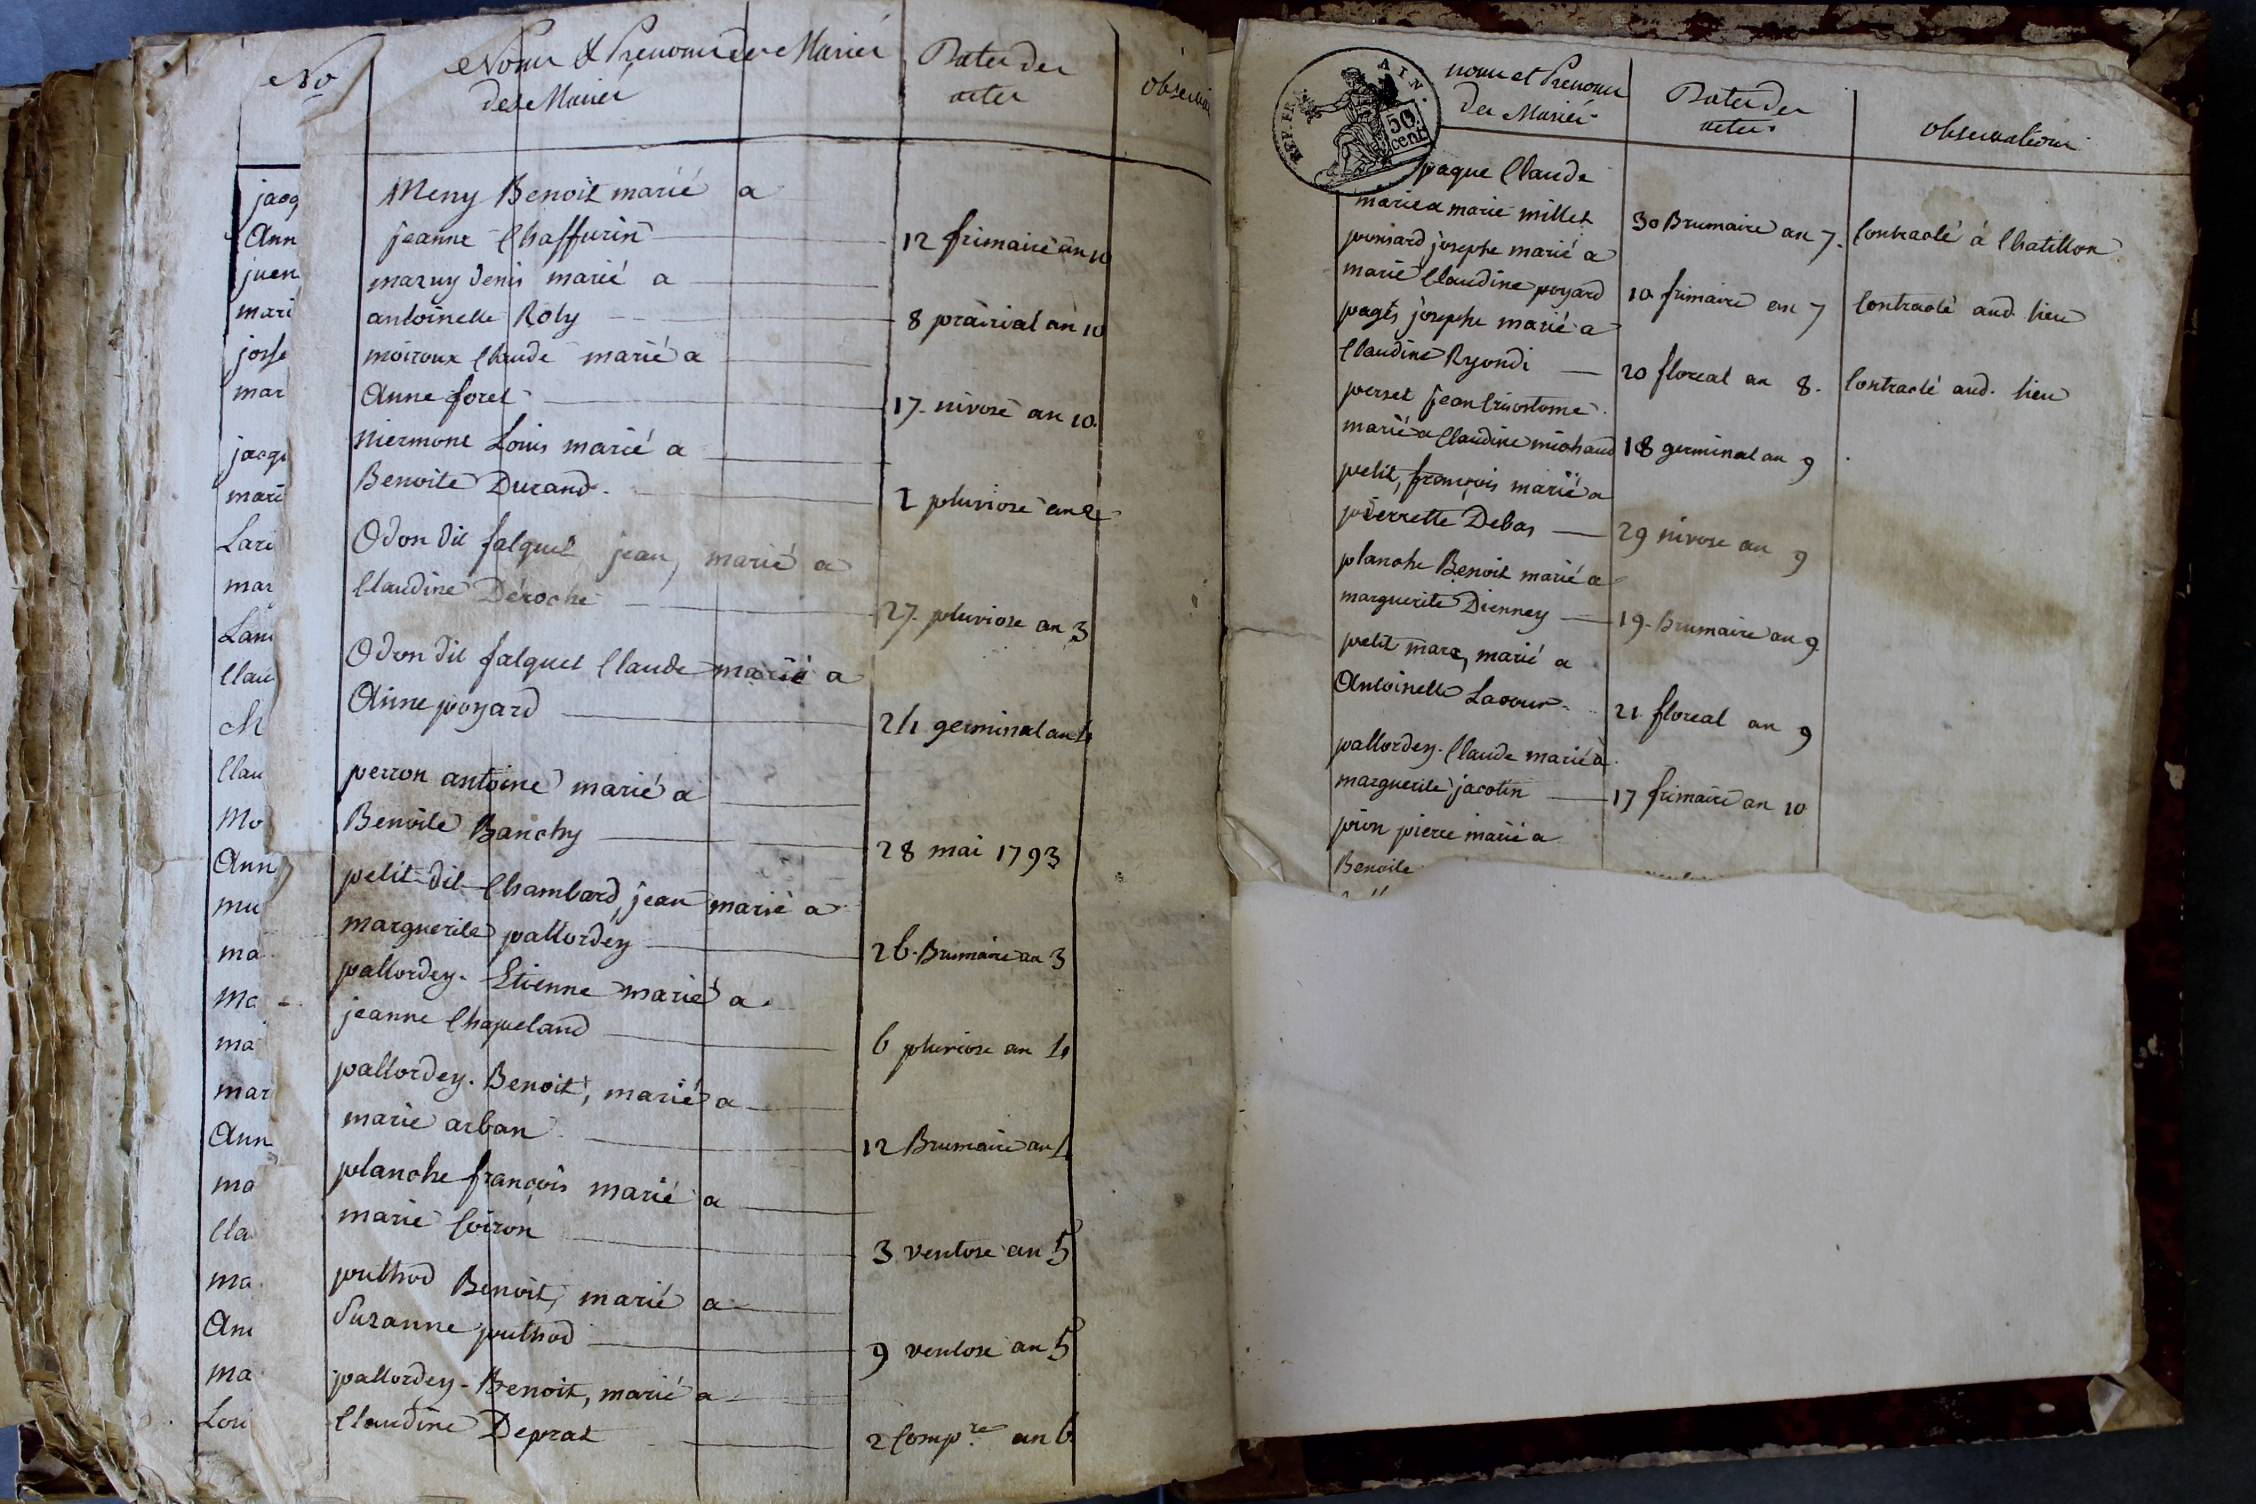 No
Noms & Prenoms des Mariés
des Mariés
Dates des
actes
jacq
Ann
juen
mari
jose
mar
jacqu
mari
Lari
mar
Lam
Clau
M
Clau
Mo
Ann
mu
ma
Ma
ma
mar
Ann
ma
Cla
ma
An
ma
Lou
Meny Benoit marié a
jeanne Chaffurin 12 frimaire an 10
mazuy denis marié a
antoinette Roly 8 prairial an 10
moiroux Claude marié a
Anne foret 17. nivose an 10.
Niermont Louis marié a
Benoite Durand. 2 pluviose an 2
Odon dit falquet jean, marié a
Claudine Déroche 27. pluviose an 3
Odon dit falquet Claude marié a
Anne poyard 24 germinal an 4
perron antoine marié a
Benoite Banchy 28 mai 1793
petit dit Chambard, jean marié a
marguerite pallordey 26. Brumaire an 3
pallordey. Etienne marié a
jeanne Chapeland 6 pluviose an 4
pallordey. Benoit, marié a
marie arban 12 Brumaire an 4
planche françois marié a
marie Coiron 3 ventose an 5
puthod Benoit, marié a
Suzanne puthod 9 ventose an 5
pallordey - Benoit, marié a
Claudine Deprat 2 Comp.re an 6
REP. FRA.
AIN.
50
cent
noms et Prenoms
des Mariés
Dates des
actes
observations
paque Claude
marié a marie millet 30 Brumaire an 7. Contracté à Chatillon
ponsard josephe marié a
marie Claudine poyard 10 frimaire an 7 Contracté aud. lieu
pagès josephe marié a
Claudine Ryondi 20 floreal an 8. Contracté aud. lieu
perset jean Crisostome
marié a Claudine michaud 18 germinal an 9
petit, françois marié a
pierrette Debas 29 nivose an 9
planche Benoit marié a
marguerite Dienney 19. Brumaire an 9
petit marc, marié a
Antoinette Lacour 21 floreal an 9
pallordey. Claude marié a
marguerite jacotin 17 frimaire an 10
prin pierre marié a
Benoite